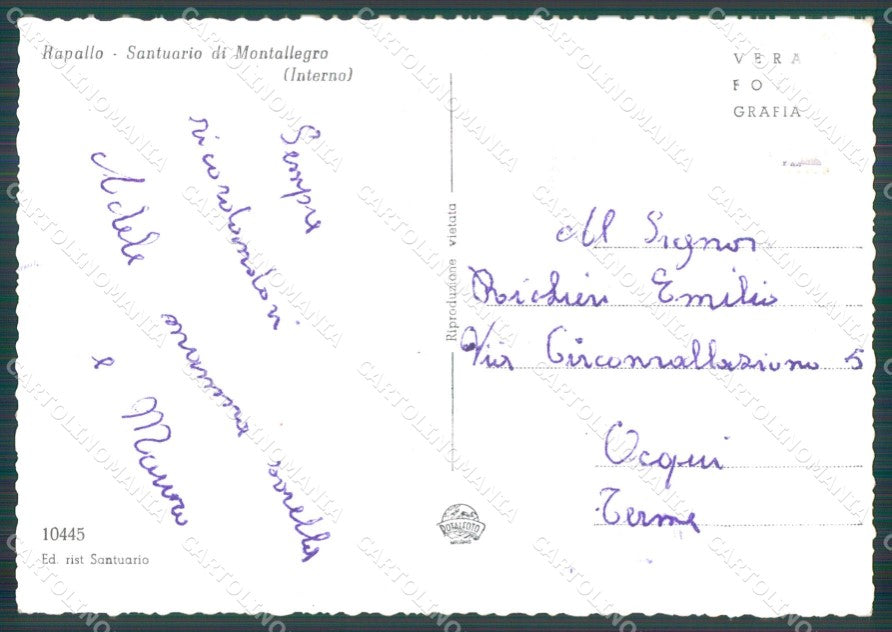 Rapallo - Santuario di Montallegro
(Interno)
VERA
FO
GRAFIA
Sempre
ricordandovi
Adele mamma sorella
e Mauro
Riproduzione vietata
Al Signor
Richieri Emilio
Via Circonvallazione 5
Acqui
Terme
10445
Ed. rist Santuario
ROTALFOTO
CARTOLINOMANIA